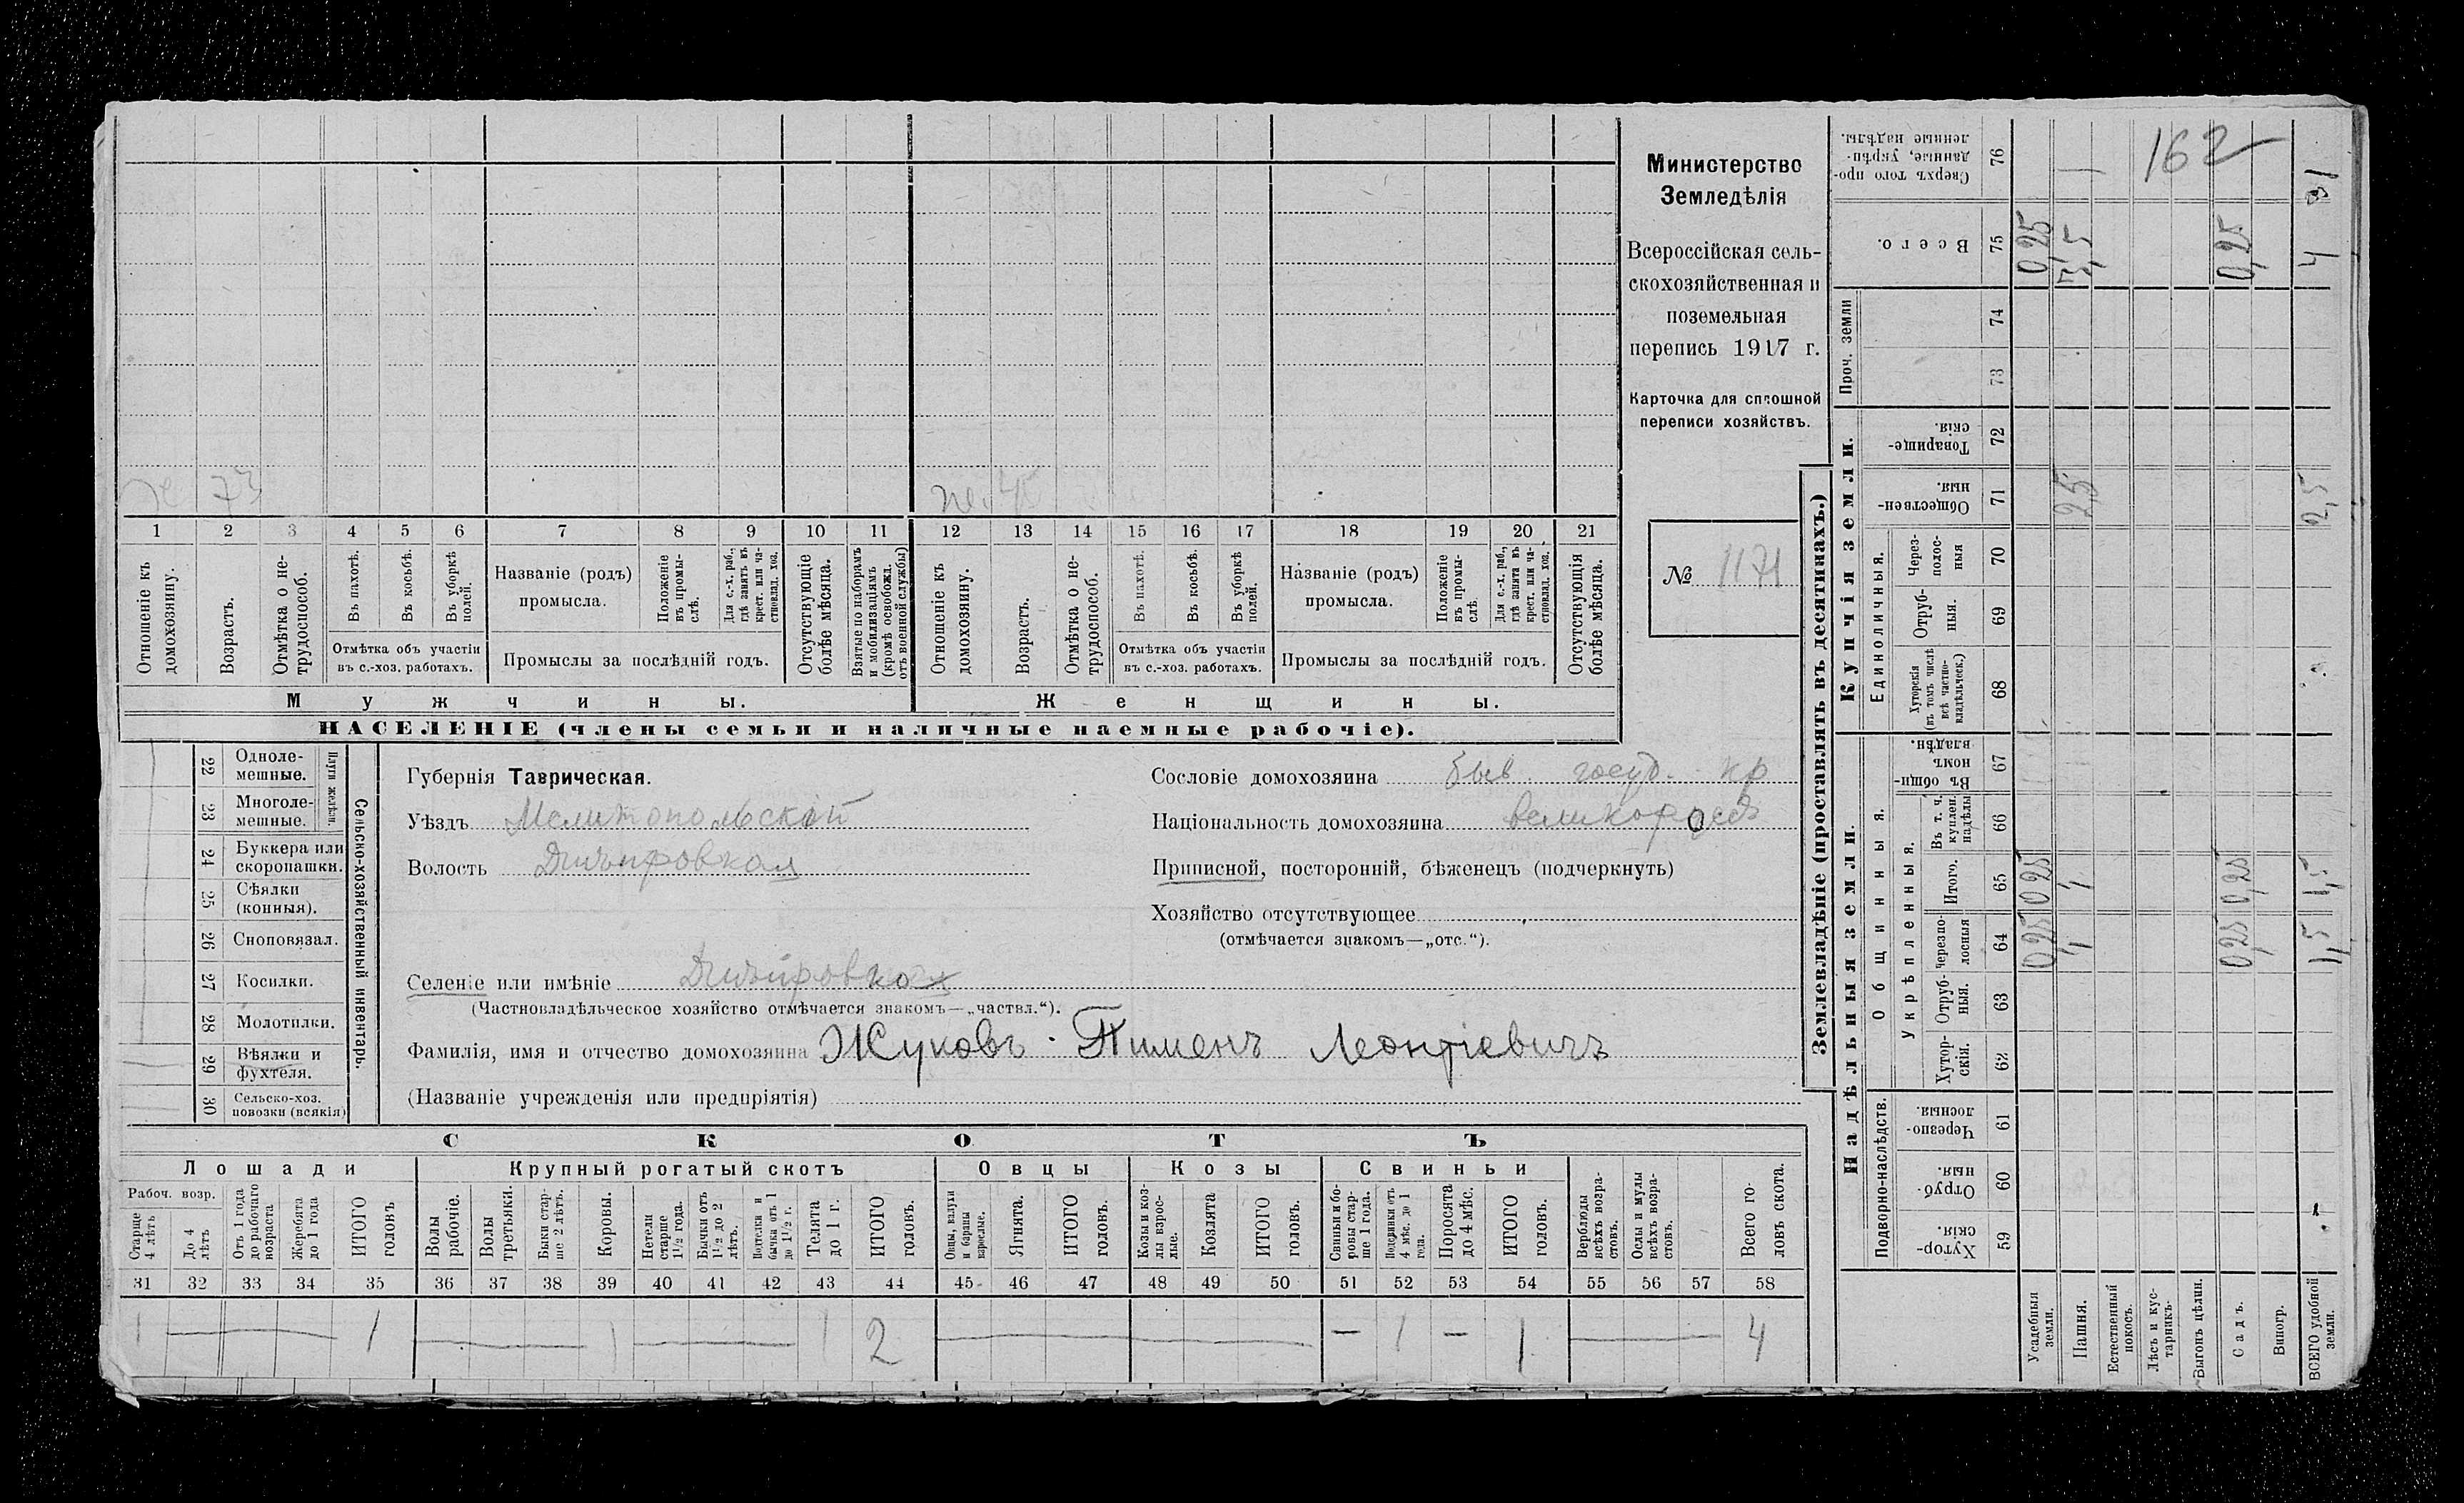 Министерство
Земледѣлія
Всероссійская сель-
скохозяйственная и
поземельная
перепись 1917 г.
Карточка для сплошной
переписи хозяйствъ.
№ 1171
73
1 2 3 4 5 6 7 8 9 10 11 12 13 14 15 16 17 18 19 20 21
Отношеніе къ домохозяину.
Возрастъ.
Отмѣтка о не-трудоспособ.
Въ пахотѣ.
Въ косьбѣ.
Въ уборкѣ полей.
Отмѣтка объ участіи
въ с.-хоз. работахъ.
Названіе (родъ)
промысла.
Положеніе въ промы-слѣ.
Для с.-х. раб., гдѣ занятъ въ крест. или ча-стновлад. хоз.
Промыслы за послѣдній годъ.
Отсутствующіе болѣе мѣсяца.
Взятые по наборамъ и мобилизаціямъ (кромѣ освобожд. отъ военной службы)
Отношеніе къ домохозяину.
Возрастъ.
Отмѣтка о не-трудоспособ.
Въ пахотѣ.
Въ косьбѣ.
Въ уборкѣ полей.
Отмѣтка объ участіи
въ с.-хоз. работахъ.
Названіе (родъ)
промысла.
Положеніе въ промы-слѣ.
Для с.-х. раб., гдѣ занята въ крест. или ча-стновлад. хоз.
Промыслы за послѣдній годъ.
Отсутствующія болѣе мѣсяца.
Мужчины. Женщины.
НАСЕЛЕНІЕ (члены семьи и наличные наемные рабочіе).
22 Одноле-мешные.
23 Многоле-мешные.
Плуги желѣзн.
24 Буккера или скоропашки.
25 Сѣялки (конныя).
26 Сноповязал.
27 Косилки.
28 Молотилки.
29 Вѣялки и фухтеля.
30 Сельско-хоз. повозки (всякія)
Сельско-хозяйственный инвентарь.
Губернія Таврическая.
Уѣздъ Мелитопольскій
Волость Днѣпровкая
Сословіе домохозяина быв. госуд. кр
Національность домохозяина великороссъ
Приписной, посторонній, бѣженецъ (подчеркнуть)
Хозяйство отсутствующее
(отмѣчается знакомъ—„отс.“).
Селеніе или имѣніе Днѣпровка
(Частновладѣльческое хозяйство отмѣчается знакомъ—„частвл.“).
Фамилія, имя и отчество домохозяина Жуковъ Пименъ Леонтіевичъ
(Названіе учрежденія или предпріятія)
СКОТЪ
Лошади Крупный рогатый скотъ Овцы Козы Свиньи
Рабоч. возр.
Старше 4 лѣтъ
До 4 лѣтъ
Отъ 1 года до рабочаго возраста
Жеребята до 1 года
ИТОГО головъ
Волы рабочіе.
Волы третьяки.
Быки стар-ше 2 лѣтъ.
Коровы.
Нетели старше 1½ года.
Бычки отъ 1½ до 2 лѣтъ.
Подтелки и бычки отъ 1 до 1½ г.
Телята до 1 г.
ИТОГО головъ.
Овцы, валухи и бараны взрослые.
Ягнята.
ИТОГО головъ.
Козы и коз-лы взрос-лые.
Козлята
ИТОГО головъ.
Свиньи и бо-ровы стар-ше 1 года.
Подсвинки отъ 4 мѣс. до 1 года.
Поросята до 4 мѣс.
ИТОГО головъ.
Верблюды всѣхъ возра-стовъ.
Ослы и мулы всѣхъ возра-стовъ.
Всего го-ловъ скота.
31 32 33 34 35 36 37 38 39 40 41 42 43 44 45 46 47 48 49 50 51 52 53 54 55 56 57 58
1 — 1 — 1 — 1 2 — – 1 – 1 — 4
Землевладѣніе (проставлять въ десятинахъ.)
Надѣльныя земли. Купчія земли. Проч. земли
Подворно-наслѣдств.
Общинныя.
Укрѣпленныя.
Единоличныя.
59 Хутор-скія.
60 Отруб-ныя.
61 Черезпо-лосныя
62 Хутор-скія.
63 Отруб-ныя.
64 Черезпо-лосныя
65 Итого.
66 Въ т. ч. куплен. надѣлы
67 Въ общин-номъ владѣн.
68 Хуторскія (въ томъ числѣ всѣ частно-владѣльческ.)
69 Отруб-ныя.
70 Через-полос-ныя
71 Обществен-ныя.
72 Товарище-скія.
73
74
75 Всего.
76 Сверхъ того про-данные, укрѣп-ленные надѣлы.
Усадебныя земли. 0,25 0,25 0,25
Пашня. 1, 1, 2,5 3,5
Естественный покосъ.
Лѣсъ и кус-тарникъ. 162
Выгонъ цѣлин.
Садъ. 0,25 0,25 0,25
Виногр.
ВСЕГО удобной земли. 1,5 1,5 2,5 4